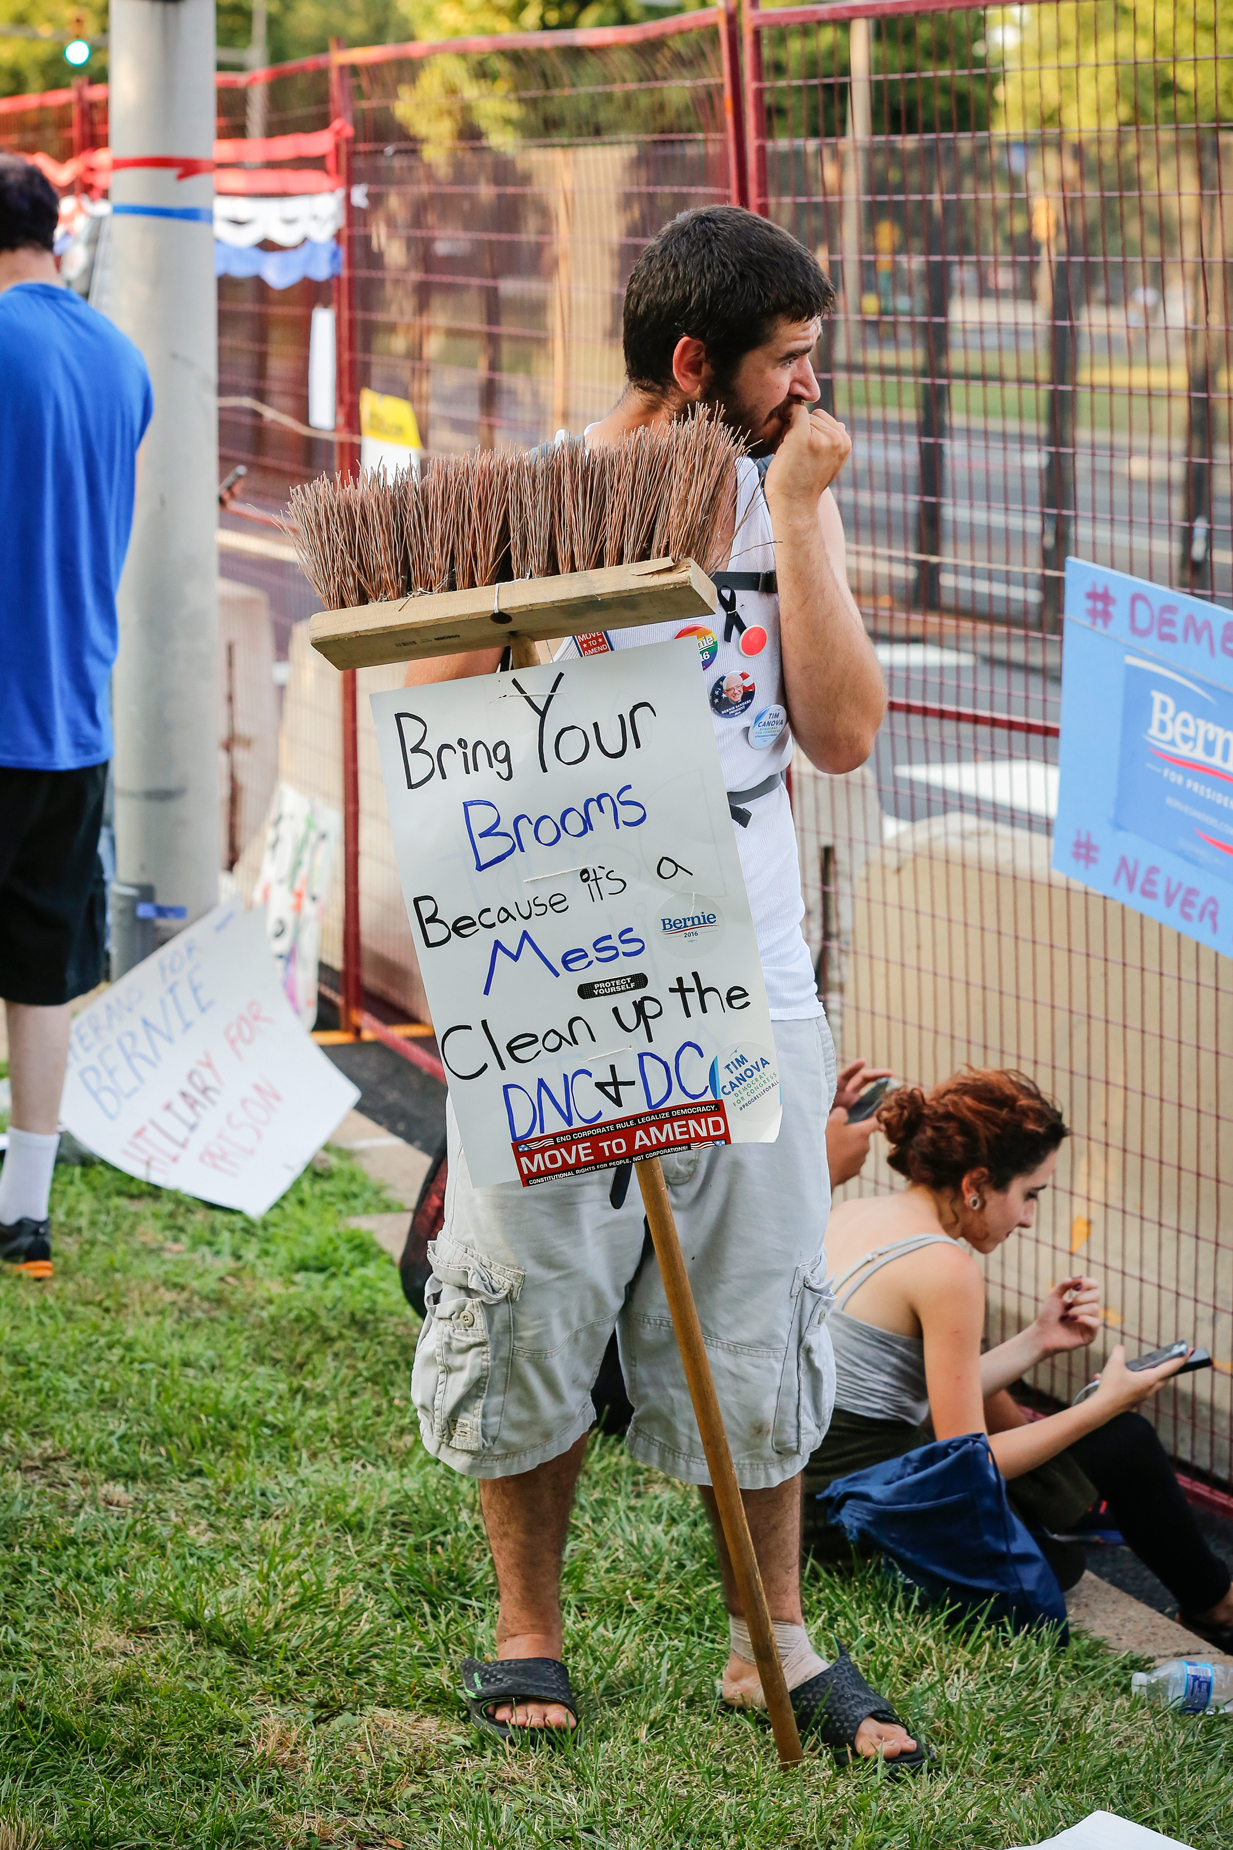 Bring Your
Brooms
Because it's a
Mess
Clean up the
DNC + DC
Bernie
2016
PROTECT
YOURSELF
TIM
CANOVA
DEMOCRAT
FOR CONGRESS
#PROGRESSFORALL
END CORPORATE RULE. LEGALIZE DEMOCRACY.
MOVE TO AMEND
CONSTITUTIONAL RIGHTS FOR PEOPLE, NOT CORPORATIONS!
MOVE
TO
AMEND
nie
16
TIM
CANOVA
ERANS FOR
BERNIE
HILLARY FOR
PRISON
# DEME
Bern
FOR PRESIDEN
# NEVER